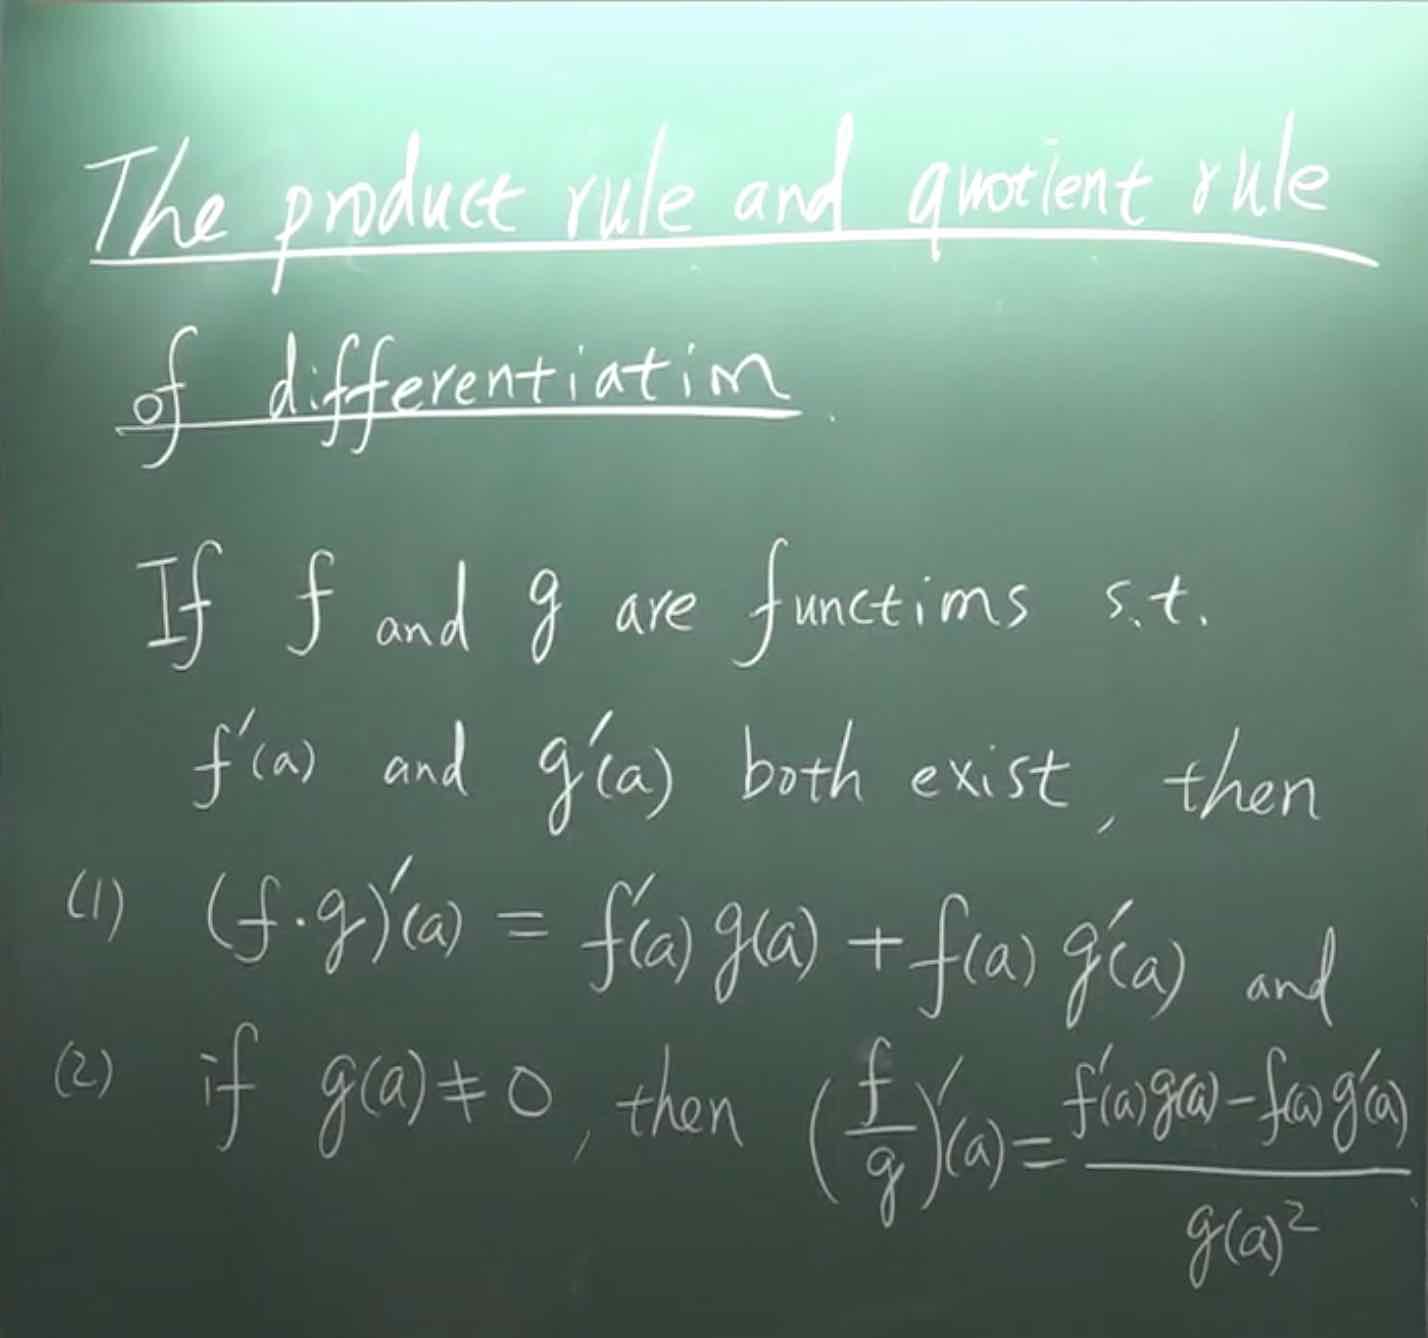 The product rule and quotient rule
of differentiation.
If f and g are functions s.t.
f'(a) and g'(a) both exist, then
(1) (f·g)'(a) = f'(a) g(a) + f(a) g'(a) and
(2) if g(a) ≠ 0, then (f/g)'(a) = (f'(a)g(a) - f(a)g'(a))/g(a)²